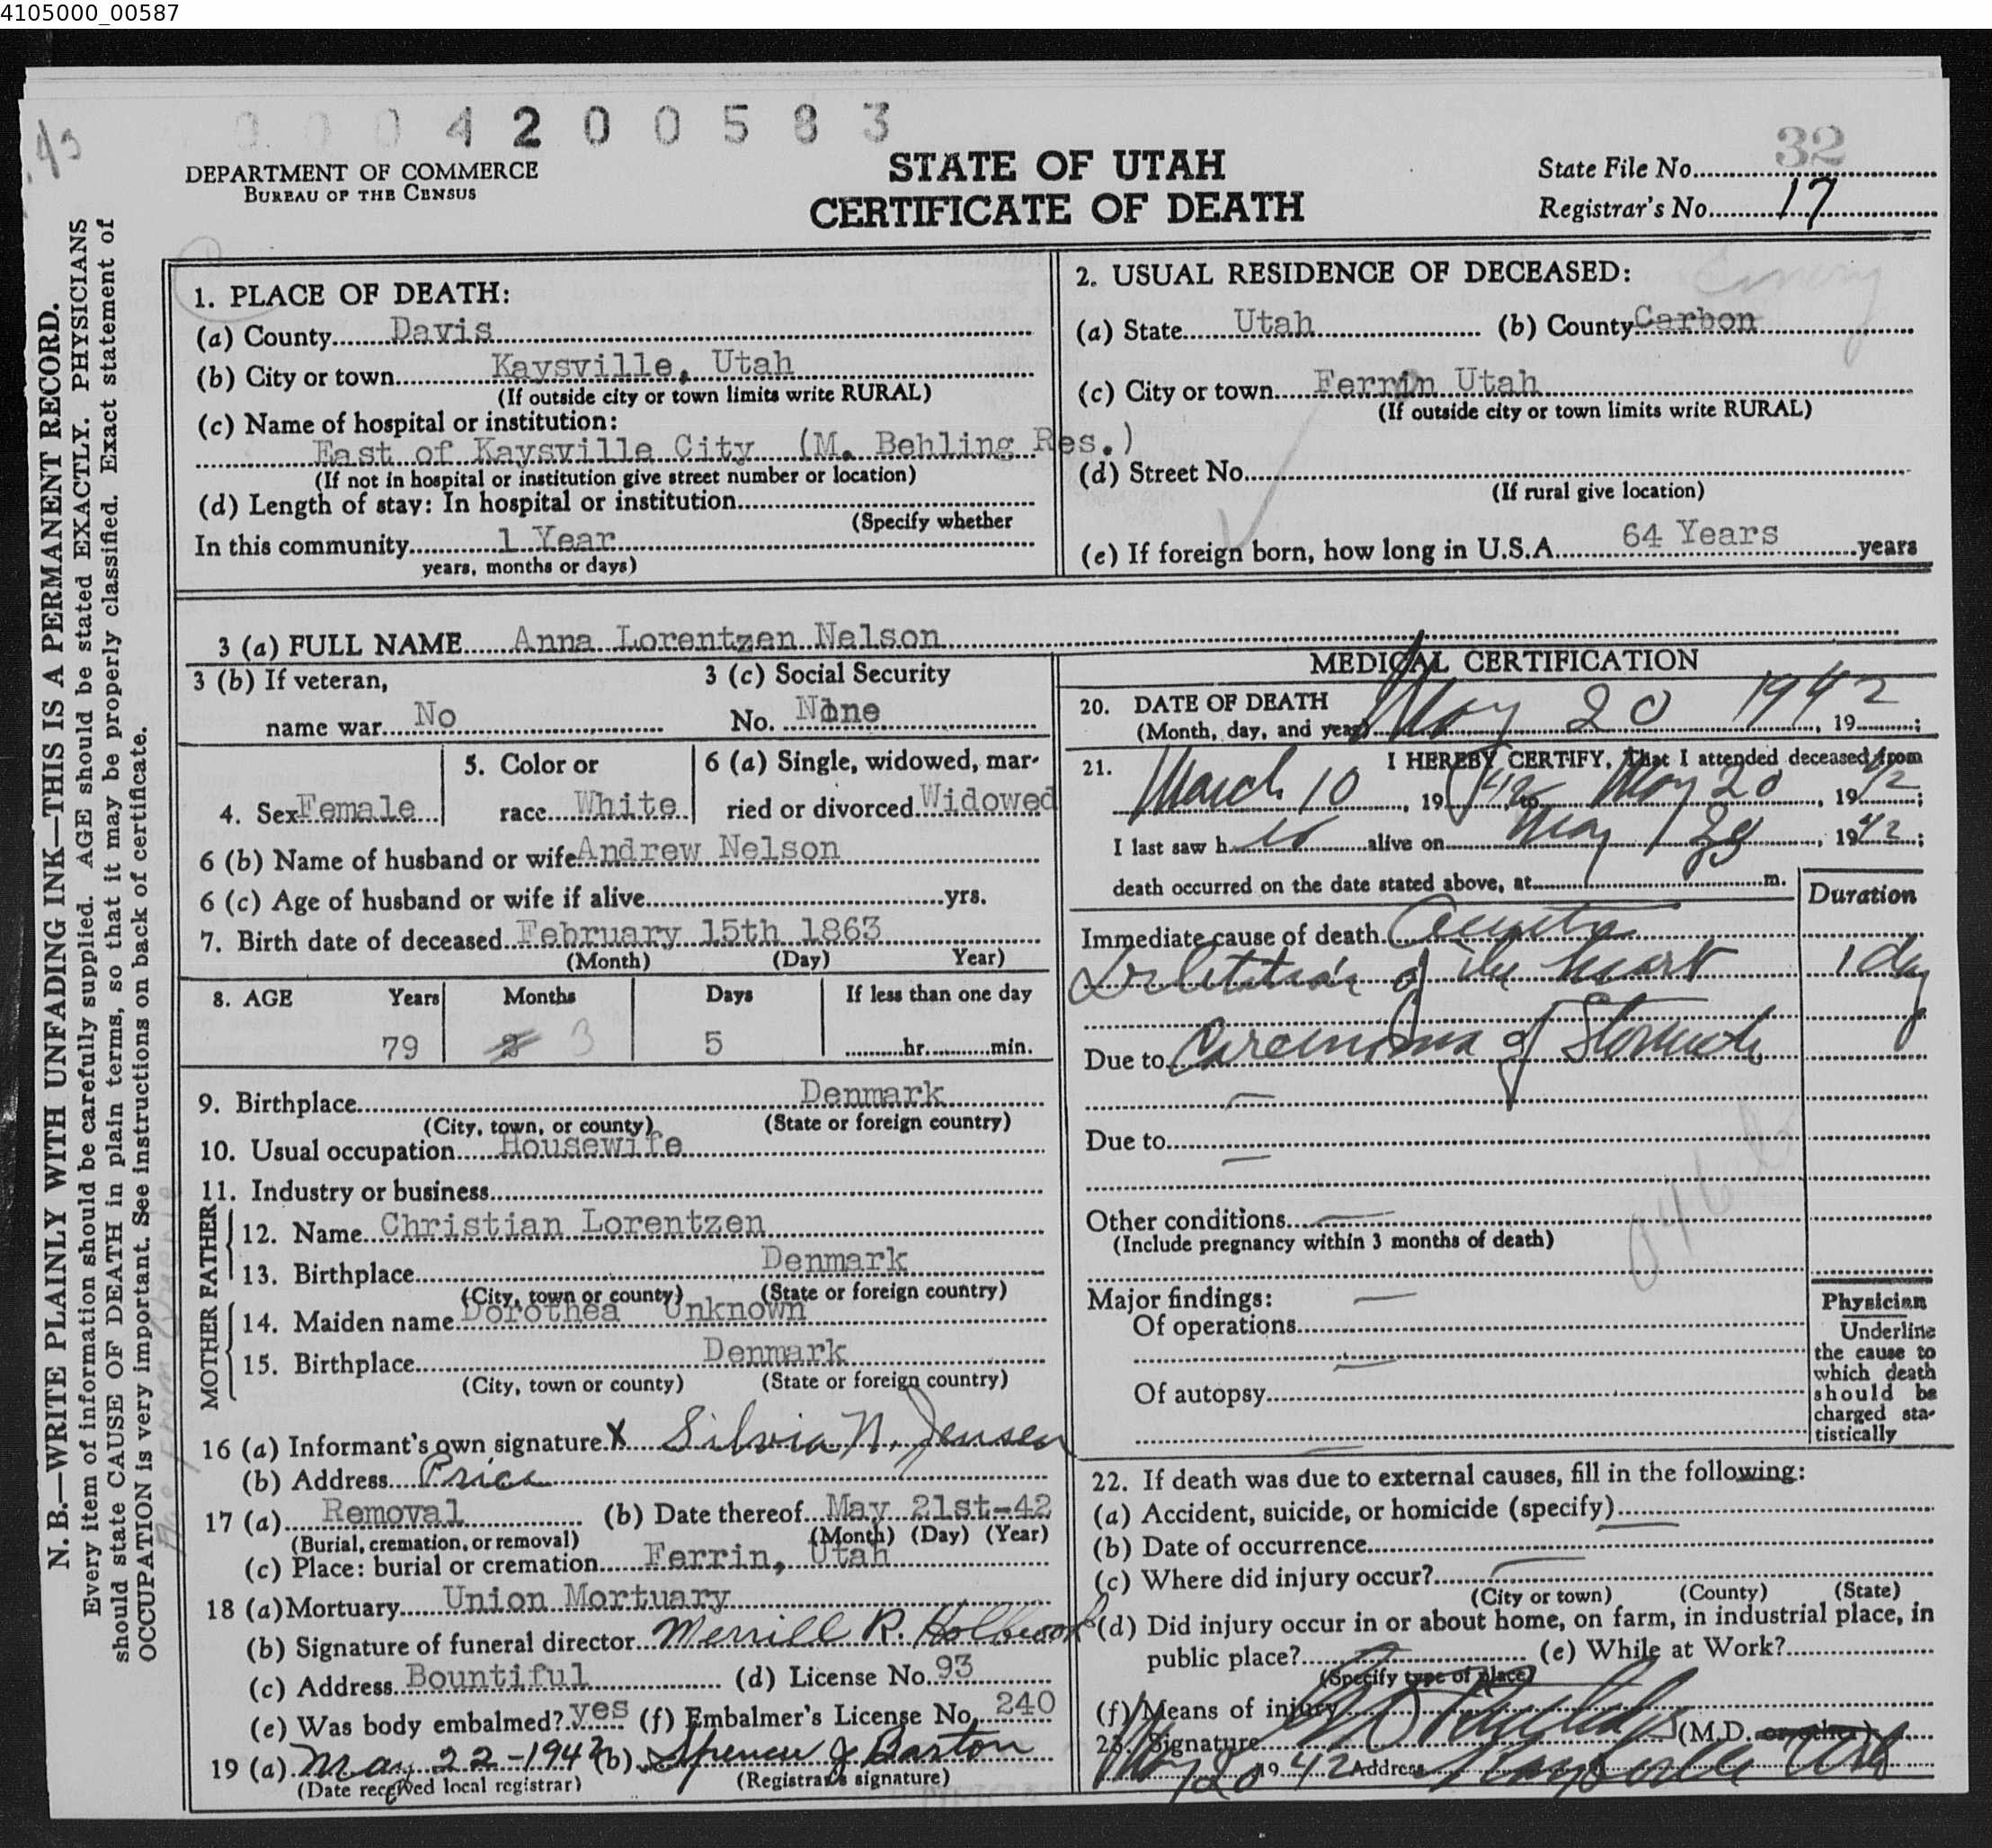 4105000_00587
0004200583
DEPARTMENT OF COMMERCE
BUREAU OF THE CENSUS
STATE OF UTAH
CERTIFICATE OF DEATH
State File No. 32
Registrar's No. 17
N. B.—WRITE PLAINLY WITH UNFADING INK—THIS IS A PERMANENT RECORD.
Every item of information should be carefully supplied. AGE should be stated EXACTLY. PHYSICIANS
should state CAUSE OF DEATH in plain terms, so that it may be properly classified. Exact statement of
OCCUPATION is very important. See instructions on back of certificate.
1. PLACE OF DEATH:
(a) County Davis
(b) City or town Kaysville, Utah
(If outside city or town limits write RURAL)
(c) Name of hospital or institution:
East of Kaysville City (M. Behling Res.)
(If not in hospital or institution give street number or location)
(d) Length of stay: In hospital or institution
(Specify whether
In this community 1 Year
years, months or days)
2. USUAL RESIDENCE OF DECEASED:
Emery
(a) State Utah (b) County Carbon
(c) City or town Ferrin Utah
(If outside city or town limits write RURAL)
(d) Street No.
(If rural give location)
(e) If foreign born, how long in U.S.A. 64 Years years
3 (a) FULL NAME Anna Lorentzen Nelson
3 (b) If veteran, 3 (c) Social Security
name war No No. None
4. Sex Female 5. Color or race White 6 (a) Single, widowed, married or divorced Widowed
6 (b) Name of husband or wife Andrew Nelson
6 (c) Age of husband or wife if alive yrs.
7. Birth date of deceased February 15th 1863
(Month) (Day) Year)
8. AGE Years Months Days If less than one day
79 3 5 hr. min.
9. Birthplace Denmark
(City, town, or county) (State or foreign country)
10. Usual occupation Housewife
11. Industry or business
FATHER
12. Name Christian Lorentzen
13. Birthplace Denmark
(City, town or county) (State or foreign country)
MOTHER
14. Maiden name Dorothea Unknown
15. Birthplace Denmark
(City, town or county) (State or foreign country)
16 (a) Informant's own signature X Silvia N. Jensen
(b) Address Price
17 (a) Removal (b) Date thereof May 21st-42
(Burial, cremation, or removal) (Month) (Day) (Year)
(c) Place: burial or cremation Ferrin, Utah
18 (a) Mortuary Union Mortuary
(b) Signature of funeral director Merrill R. Holbrook
(c) Address Bountiful (d) License No. 93
(e) Was body embalmed? yes (f) Embalmer's License No. 240
19 (a) May 22-1942 (b) Spencer J Barton
(Date received local registrar) (Registrar's signature)
MEDICAL CERTIFICATION
20. DATE OF DEATH
(Month, day, and year) May 20 1942, 19 ;
21. I HEREBY CERTIFY, That I attended deceased from
March 10, 1942, to May 20, 1942;
I last saw h er alive on May, 1942;
death occurred on the date stated above, at m.
Duration
Immediate cause of death Acute
Diletition of the heart 1 day
Due to Carcinoma of Stomach
Due to
Other conditions
(Include pregnancy within 3 months of death)
046b
Major findings:
Of operations
Of autopsy
Physician
Underline
the cause to
which death
should be
charged sta-
tistically
22. If death was due to external causes, fill in the following:
(a) Accident, suicide, or homicide (specify)
(b) Date of occurrence
(c) Where did injury occur?
(City or town) (County) (State)
(d) Did injury occur in or about home, on farm, in industrial place, in
public place? (e) While at Work?
(Specify type of place)
(f) Means of injury
23. Signature (M.D. or other)
May 20 1942 Address Kaysville Utah